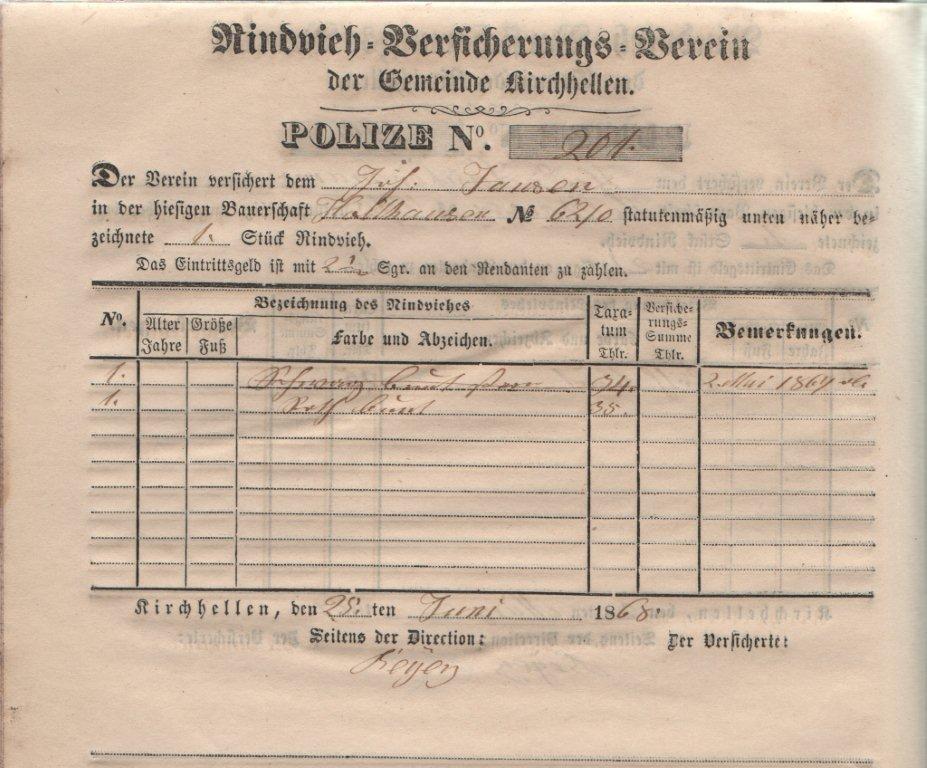 Rindvieh-Versicherungs-Verein
der Gemeinde Kirchhellen.
POLIZE No. 201.
Der Verein versichert dem Joh. Jansen
in der hiesigen Bauerschaft Holthausen № 62/0 statutenmäßig unten näher be-
zeichnete 1. Stück Rindvieh.
Das Eintrittsgeld ist mit Sgr. an den Rendanten zu zahlen.
No.
Bezeichnung des Rindviehes
Alter Jahre
Größe Fuß
Farbe und Abzeichen.
Taxa-
tum
Thlr.
Versiche-
rungs-
Summe
Thlr.
Bemerkungen.
1. Schwarz bunt 34. 2 Mai 1869
1. Roth bunt 35.
Kirchhellen, den 25. ten Juni 1868.
Seitens der Direction: Der Versicherte: